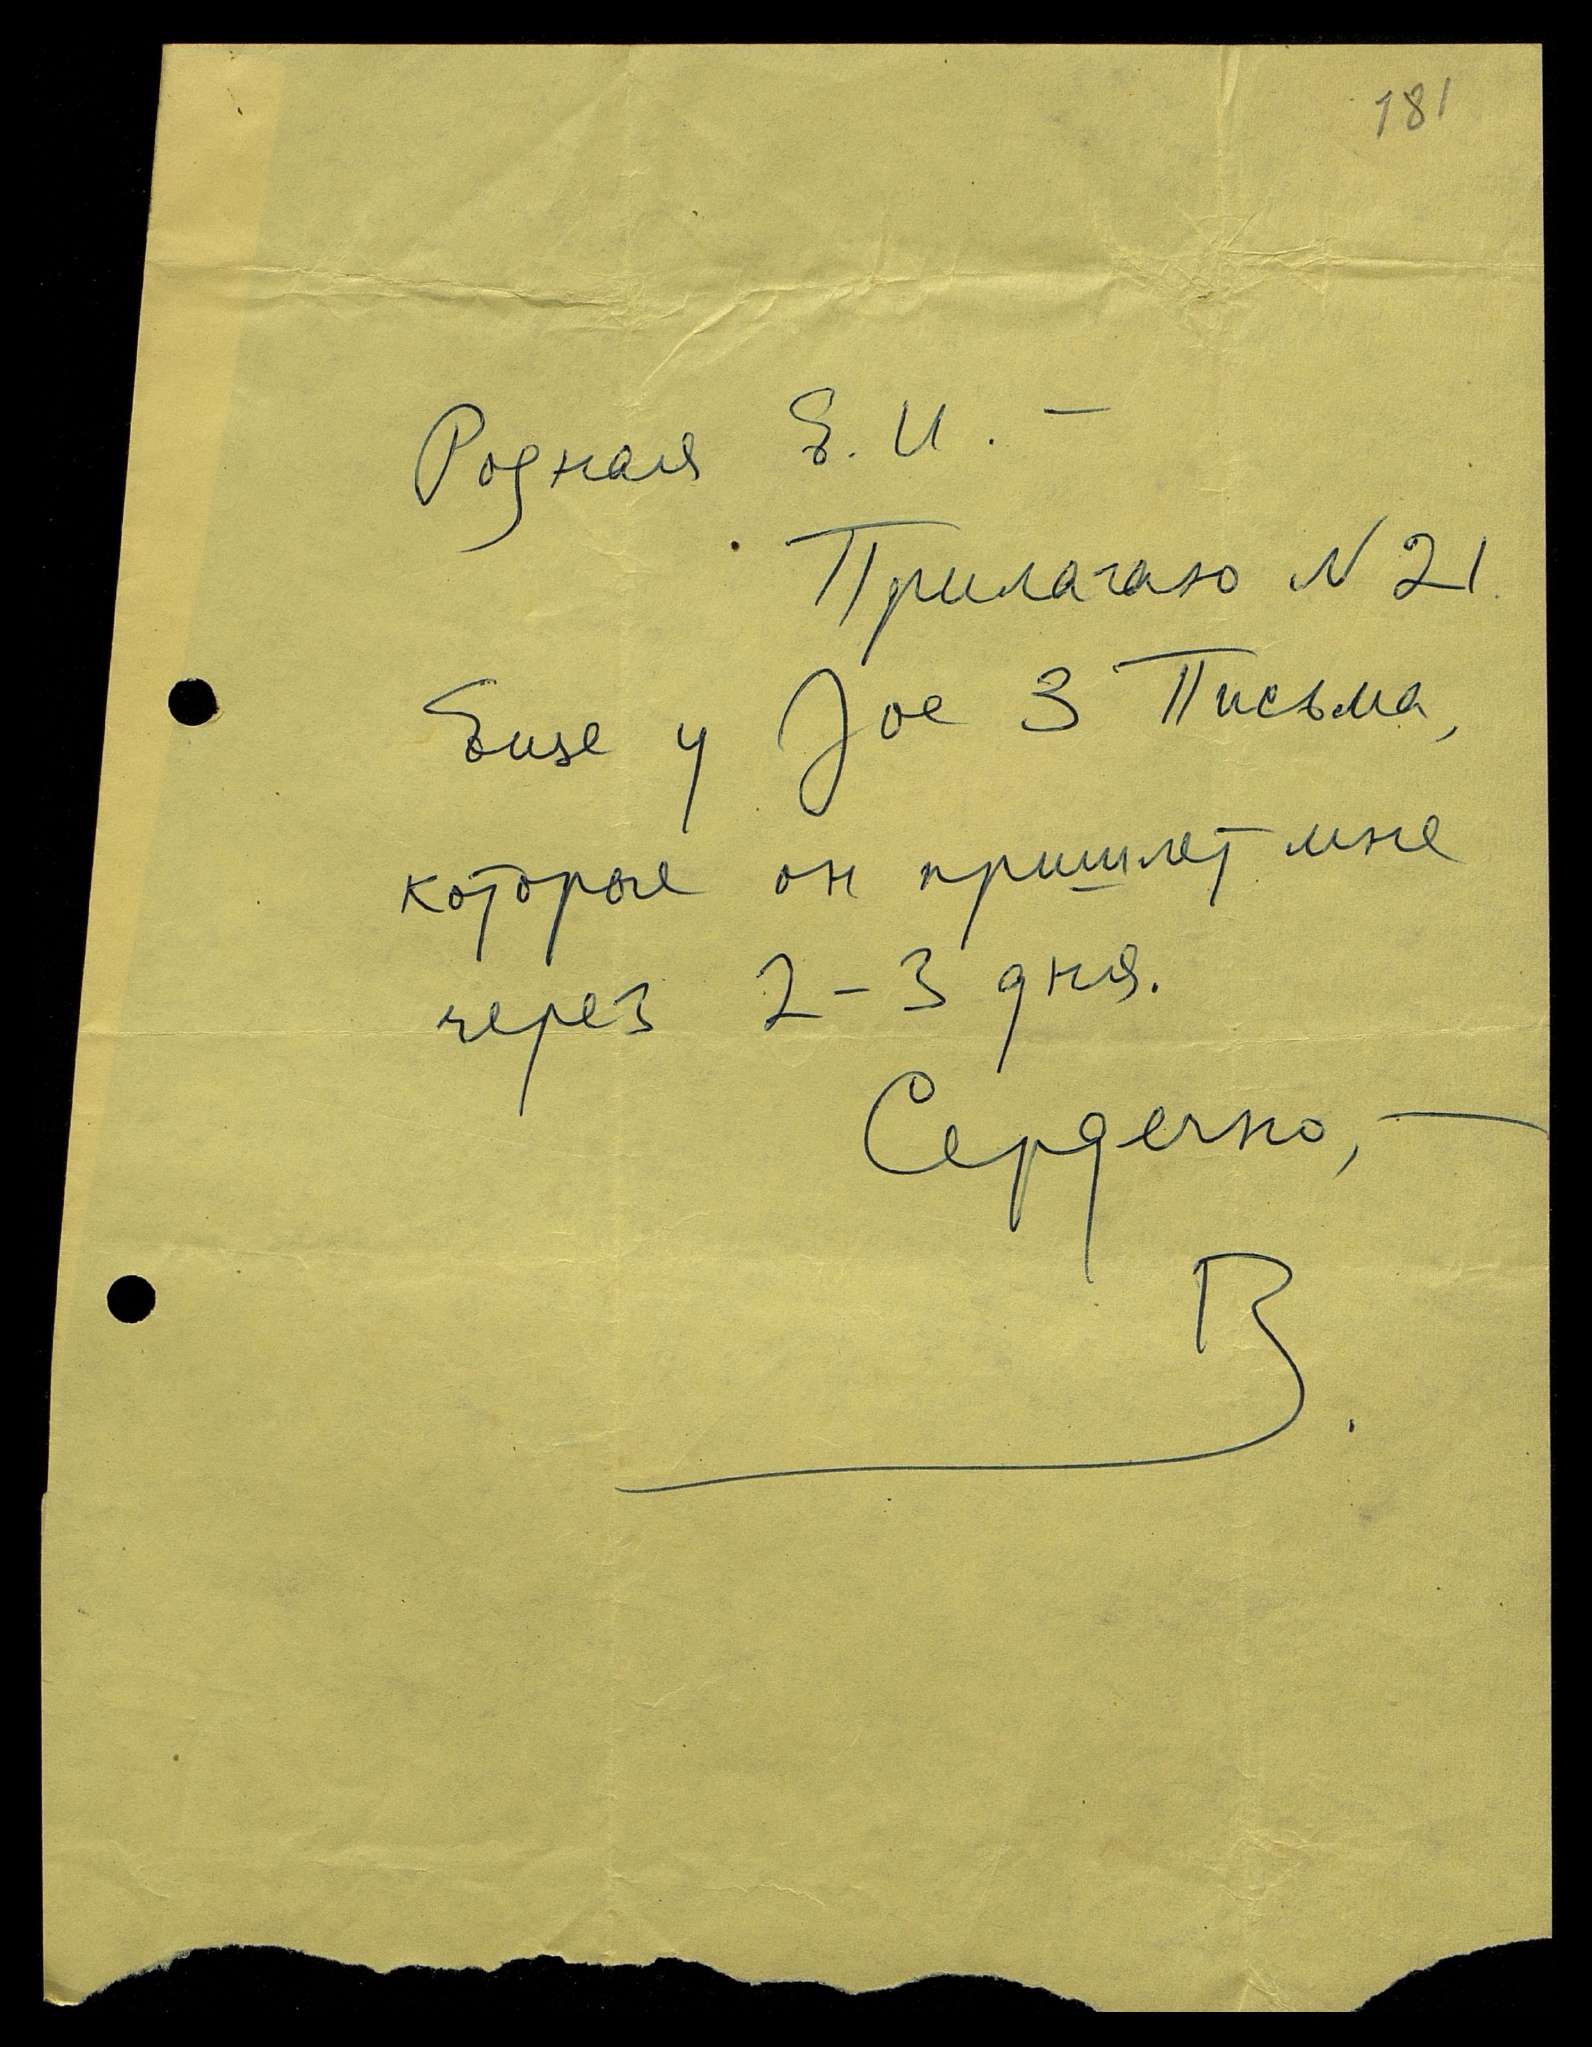 181
Родная Е.И. –
Прилагаю N 21.
Еще у Joe 3 Письма,
которые он пришлет мне
через 2–3 дня.
Сердечно, –
В.